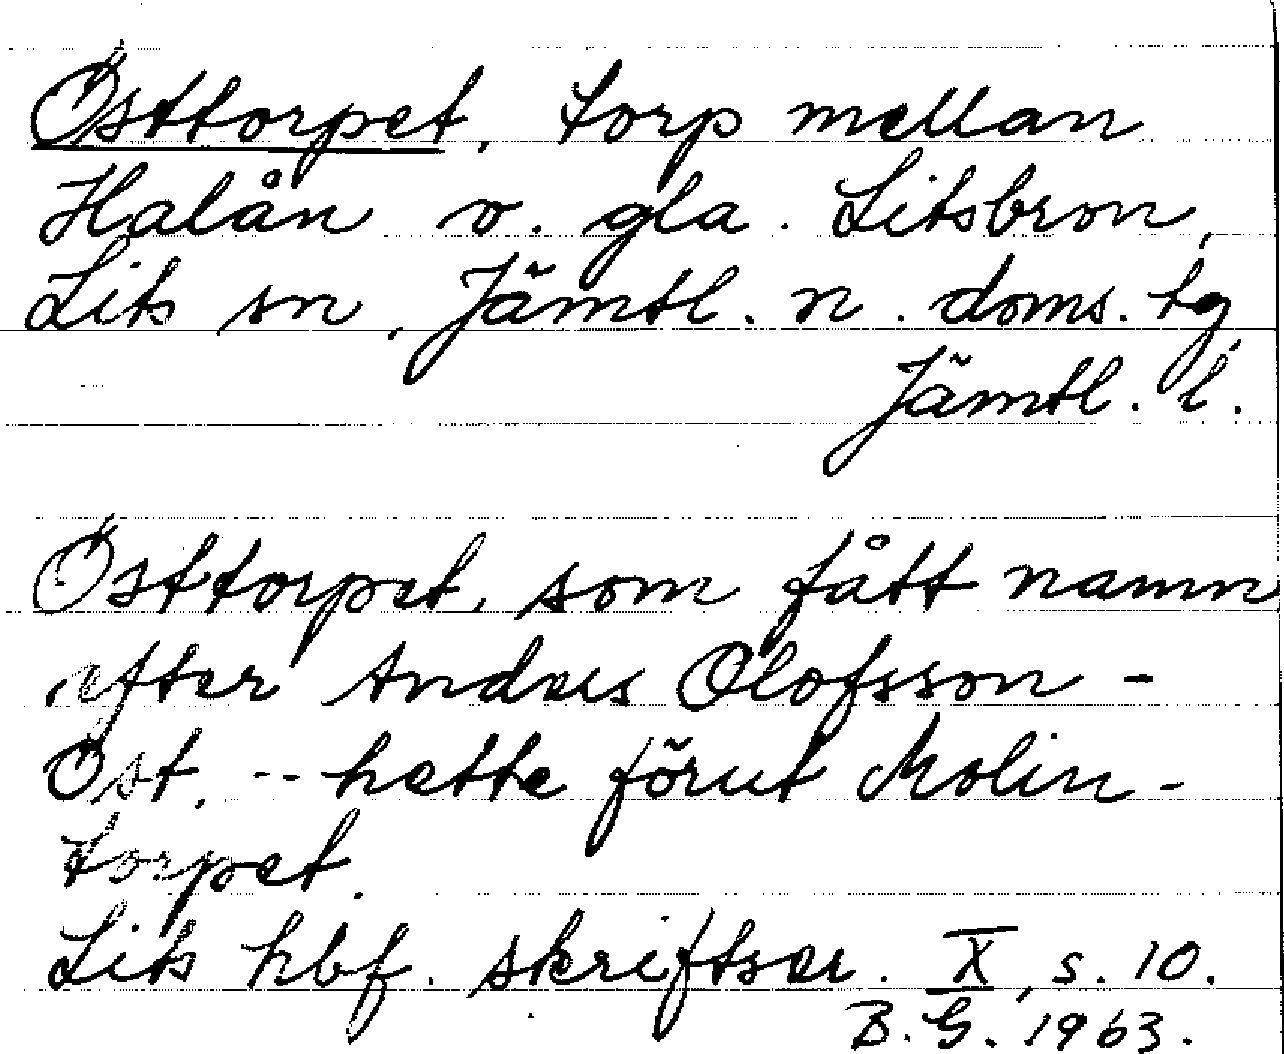 Östtorpet, torp mellan
Halån o. gla. Litsbron,
Lits sn, Jämtl. n. doms. tg,
Jämtl. l.
Östtorpet, som fått namn
efter Anders Olofsson -
Öst, -- hette förut Molin-
torpet.
Lits hbf. skriftser. X, s. 10.
B. G. 1963.